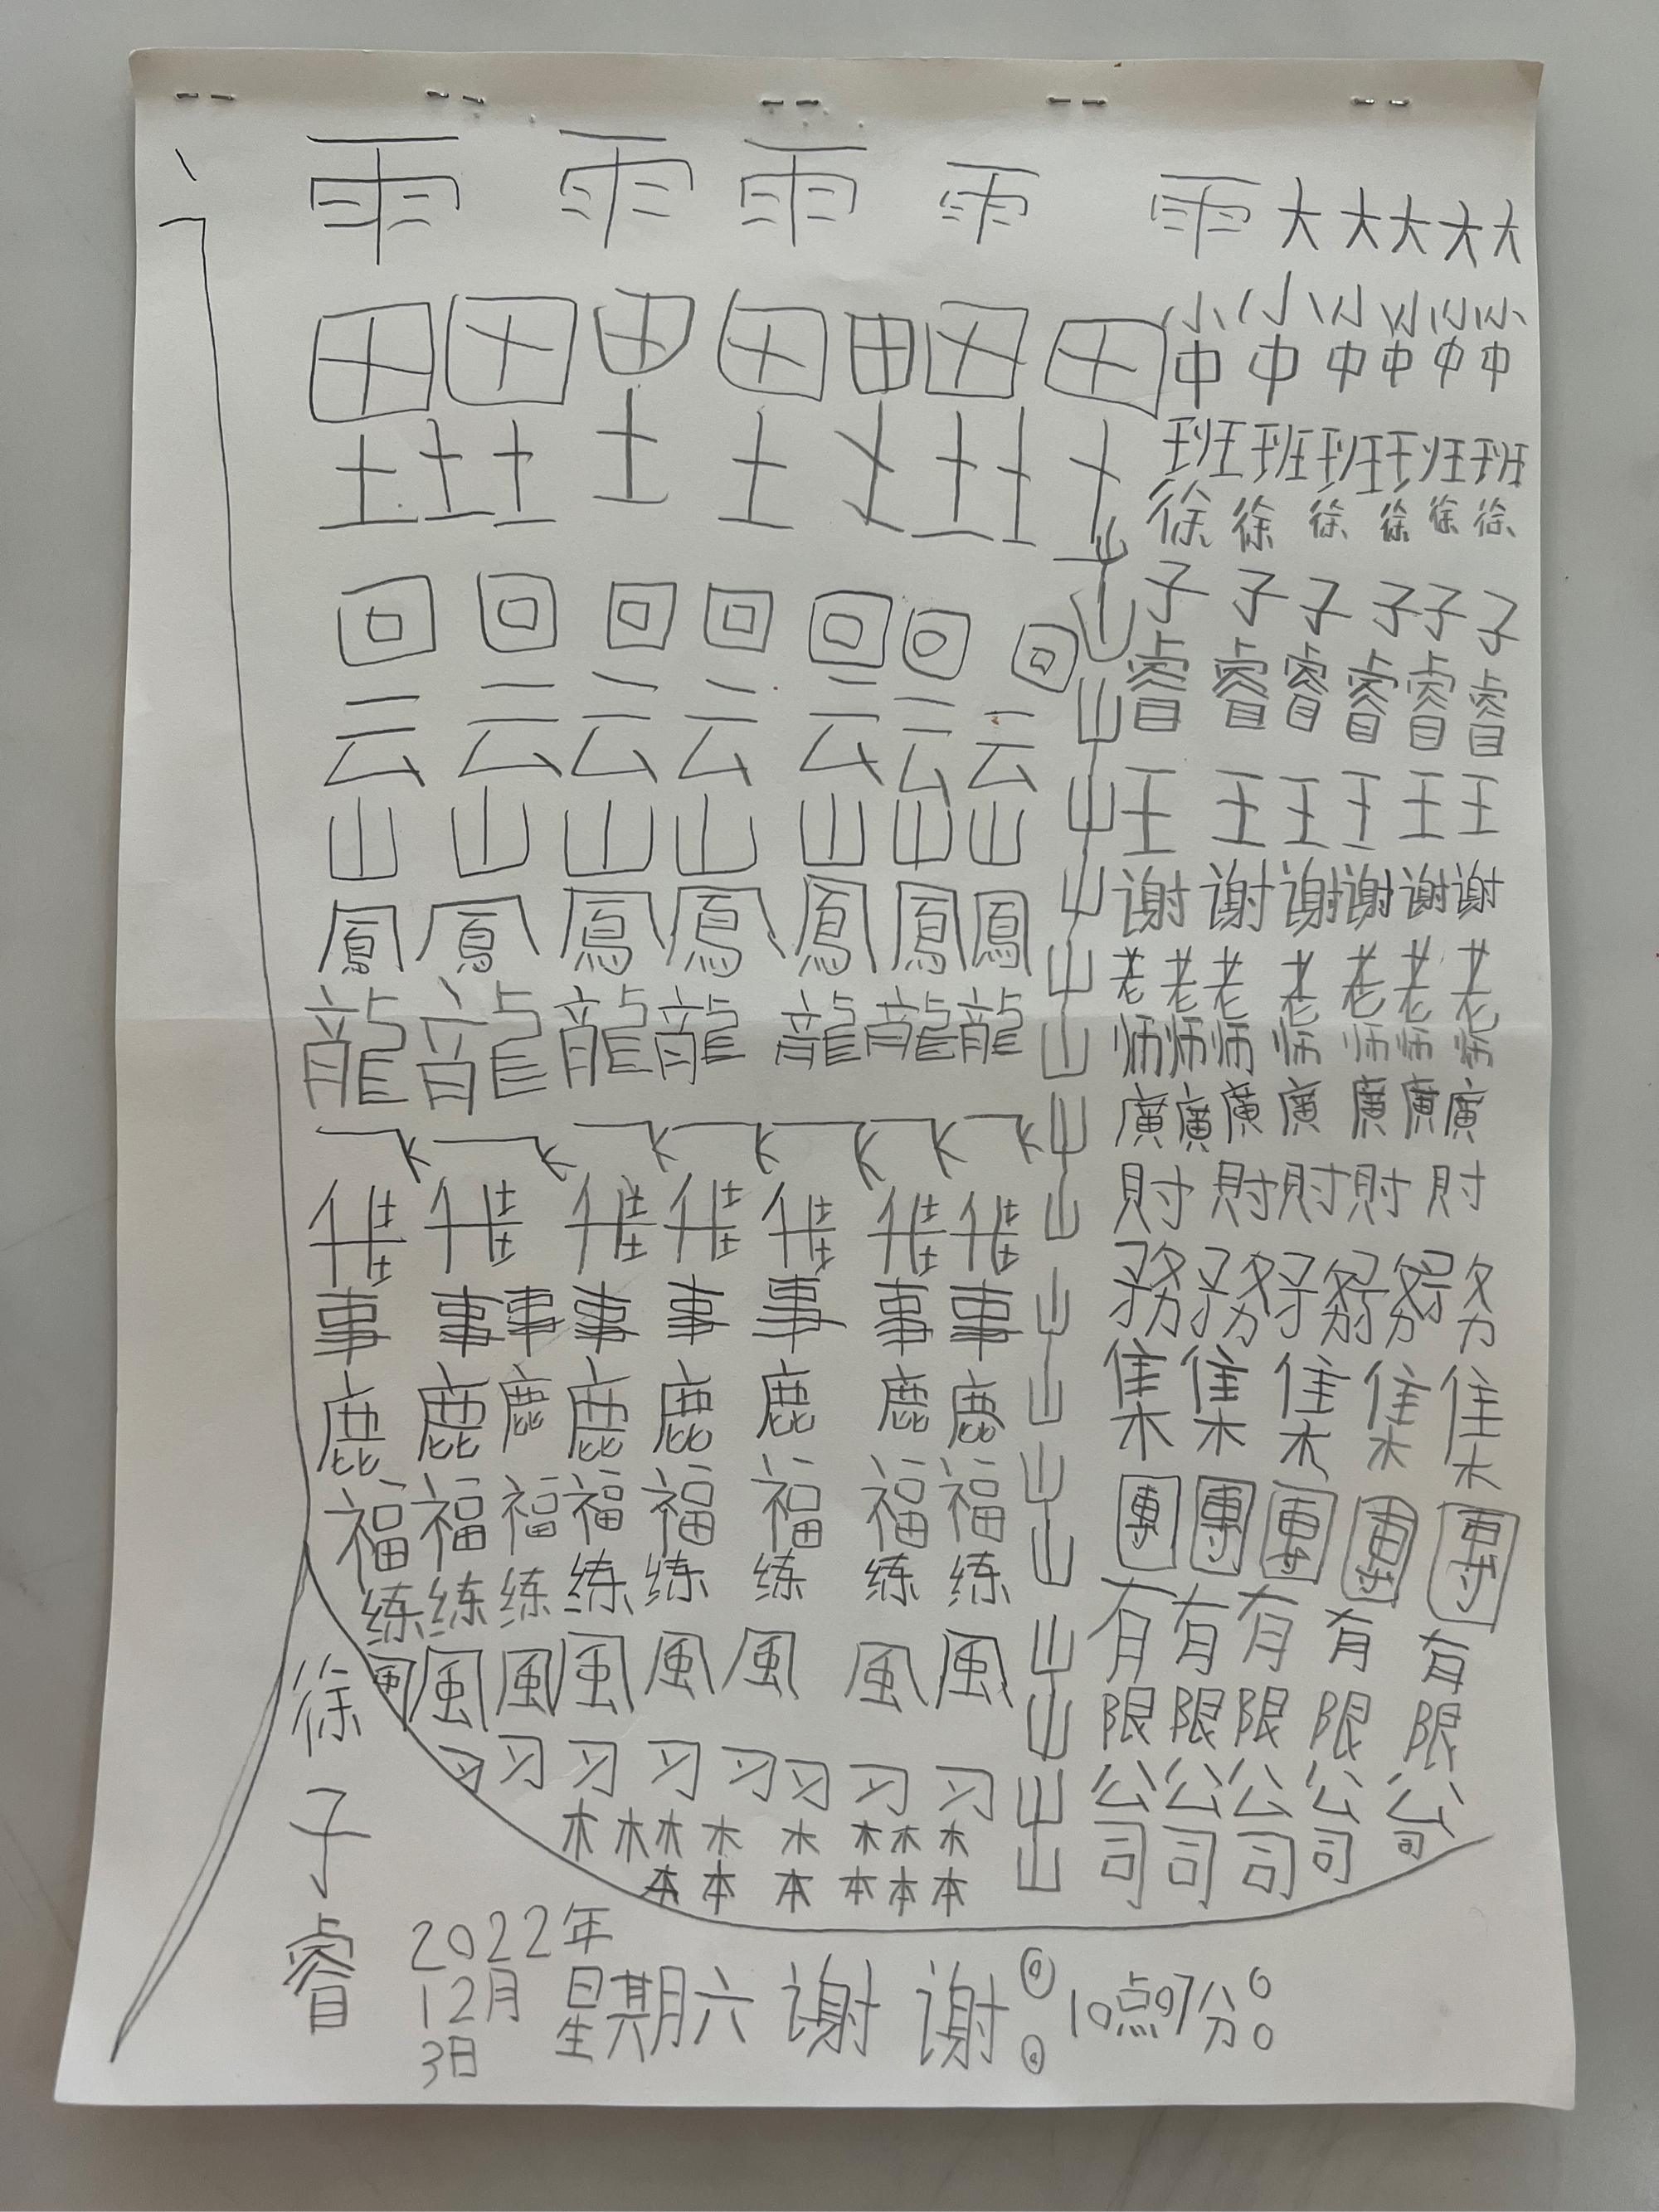 雨 雨 雨 雨 雨 大 大 大 大 大
田 田 田 田 田 田 田 小 小 小 小 小 小
中 中 中 中 中 中
土 土 土 土 土 土 土 土 土 班 班 班 班 班
徐 徐 徐 徐 徐 徐
回 回 回 回 回 回 回 山 子 子 子 子 子 子
云 云 云 云 云 云 云 山 睿 睿 睿 睿 睿 睿
山 山 山 山 山 山 山 山 王 王 王 王 王 王
鳳 鳳 鳳 鳳 鳳 鳳 鳳 山 谢 谢 谢 谢 谢 谢
龍 龍 龍 龍 龍 龍 龍 山 老 老 老 老 老 老 老
山 师 师 师 师 师 师 师
山 廣 廣 廣 廣 廣 廣 廣
山 財 財 財 財 財
事 事 事 事 事 事 事 事 山 務 務 務 務 務 務
鹿 鹿 鹿 鹿 鹿 鹿 鹿 鹿 山 集 集 集 集 集
福 福 福 福 福 福 福 福 山 團 團 團 團 團
练 练 练 练 练 练 练 练 山 有 有 有 有 有
風 風 風 風 風 風 風 風 山 限 限 限 限 限
习 习 习 习 习 习 习 习 山 公 公 公 公 公
木 木 木 木 木 木 木 木 山 司 司 司 司 司
本 本 本 本 本 本
徐子睿
2022年
12月
3日
星期六 谢 谢 10点07分